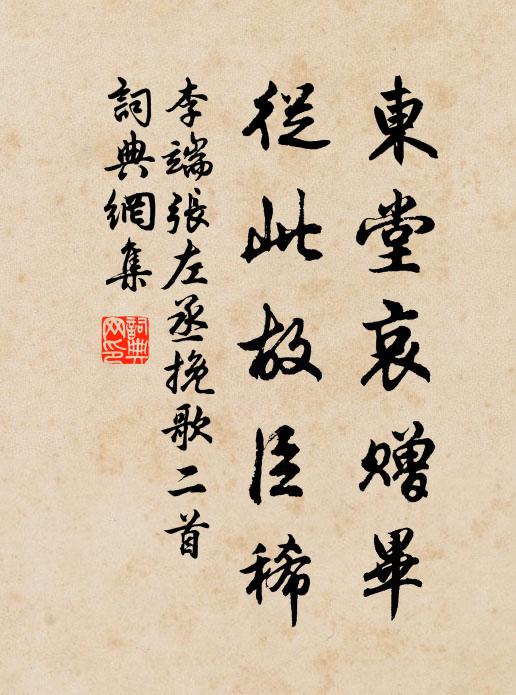 東堂哀赠畢
從此故臣稀
李端張左丞挽歌二首
詞典網集
詞典
网印